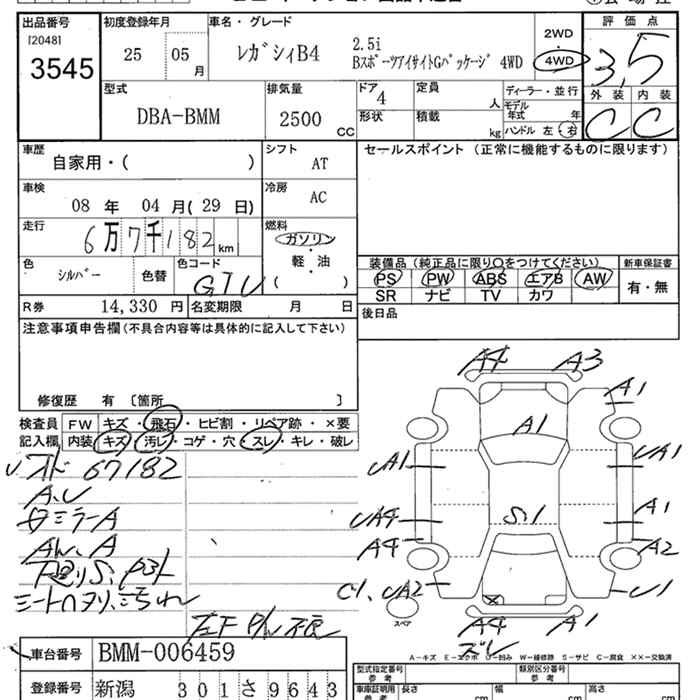 出品番号
[2048]
3545
初度登録年月
25 05 月
車名・グレード
レガシィB4
2.5i
BスポーツアイサイトGパッケージ 4WD
2WD
4WD
評価点
3.5
外装 内装
C C
型式
DBA-BMM
排気量
2500 CC
ドア
4
形状
定員
人
積載
kg
ディーラー・並行
モデル
年式 年
ハンドル 左・右
車歴
自家用・( )
シフト
AT
セールスポイント (正常に機能するものに限ります)
車検
08 年 04 月(29 日)
冷房
AC
走行
6万7千182 km
燃料
ガソリン
軽・油
( )
色
シルバー
色替
色コード
GTU
装備品 (純正品に限り○をつけてください)
PS PW ABS エアB AW
SR ナビ TV カワ
新車保証書
有・無
R券 14,330 円
名変期限 月 日
後日品
注意事項申告欄 (不具合内容等は具体的に記入して下さい)
修復歴 有 〔箇所 〕
検査員
記入欄
FW キズ・飛石・ヒビ割・リペア跡・×要
内装 キズ・汚レ・コゲ・穴・スレ・キレ・破レ
67182
A、U
ミラーA
AW、A
シートハヌリ、汚れ
A4 A3
A1
A1
UA1 UA1
S、1
UA4 A1
A4 A2
C1、UA2 U1
スペア
A4 A1
ズレ
A-キズ E-エクボ U-凹み W-補修跡 S-サビ C-腐食 ××-交換済
車台番号 BMM-006459
登録番号 新潟 301さ9643
型式指定番号
参考
類別区分番号
参考
車庫証明用
参考
長さ cm
幅 cm
高さ cm